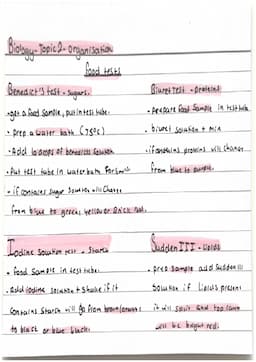 Biology-Topic 2- organisation
food tests
Benedict's test - sugars.
- get a food sample, put in test tube.
- prep a water bath (75°c)
- Add 10 drops of benedicts solution
- Put test tube in water bath for 5min
- if contains sugar solution will change
from blue to green, yellow or brick red.
Biuret Test - proteins
- prepare food sample in test tube.
- biuret solution + mix
- if contains proteins will change
from blue to purple.
Iodine solution test - Starch
- food sample in test tube.
- add iodine solution + shake if it
contains starch will go from brown/orange
to black or blue black.
Sudan III - lipids
- prep sample add Sudan III
solution if lipids present
it will split and top layer
will be bright red.